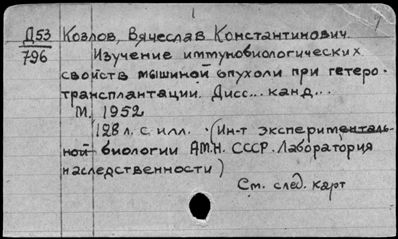 Д53 Козлов, Вячеслав Константинович.
796 Изучение иммунобиологических
свойств мышиной опухоли при гетеро-
трансплантации. Дисс... канд...
М. 1952
128 л. с илл. (Ин-т эксперименталь-
ной биологии АМН. СССР. Лаборатория
наследственности)
См. след. карт